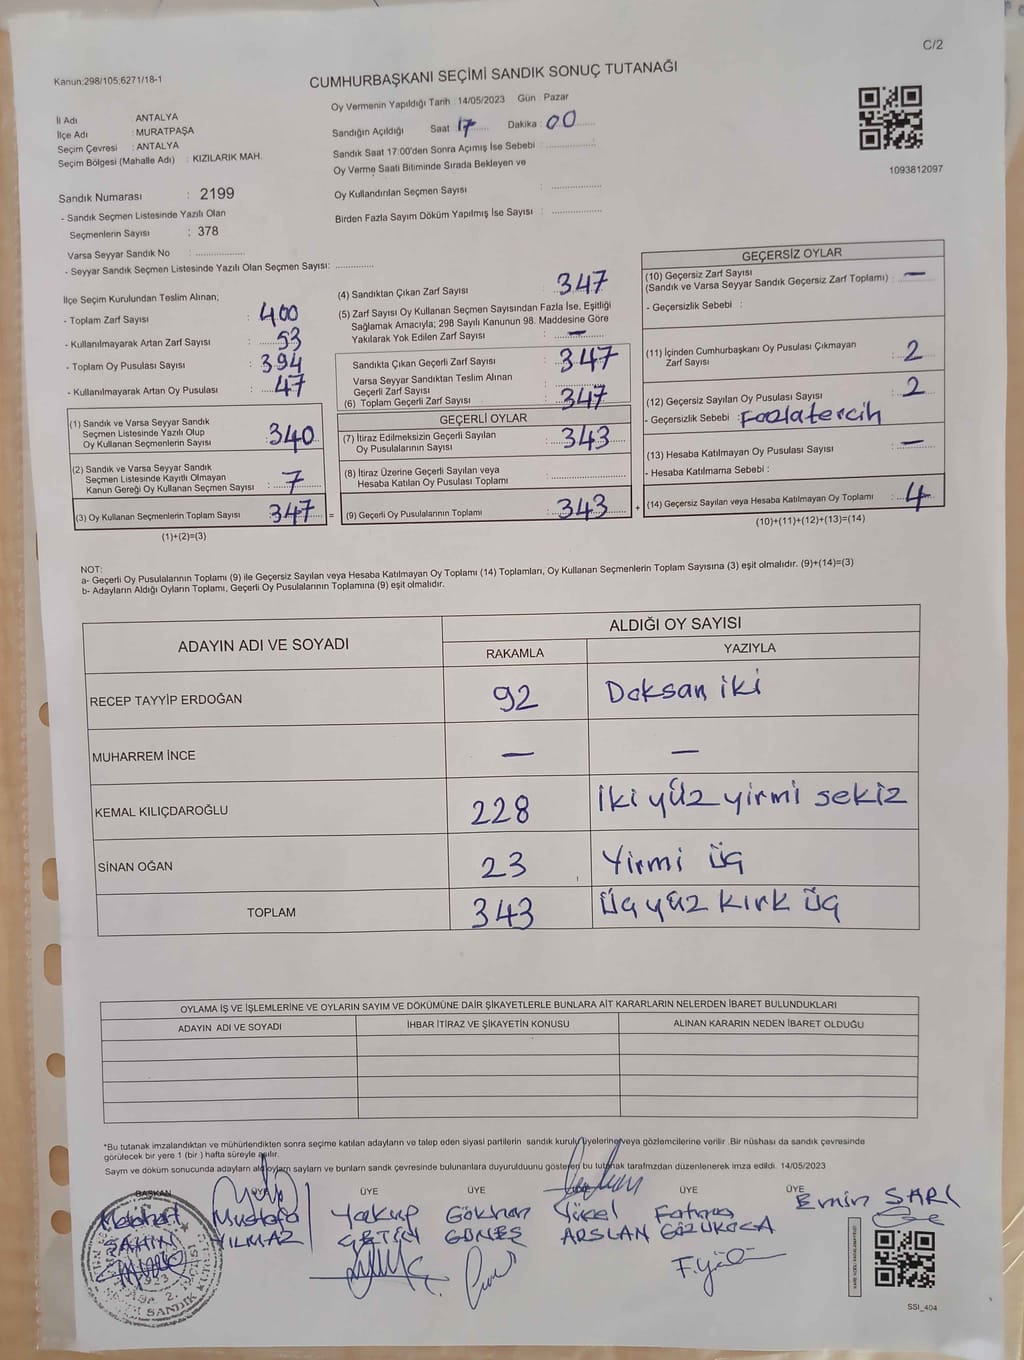 C/2
Kanun:298/105,6271/18-1
CUMHURBAŞKANI SEÇİMİ SANDIK SONUÇ TUTANAĞI
Oy Vermenin Yapıldığı Tarih : 14/05/2023 Gün : Pazar
İl Adı : ANTALYA
İlçe Adı : MURATPAŞA
Seçim Çevresi : ANTALYA
Seçim Bölgesi (Mahalle Adı) : KIZILARIK MAH.
Sandığın Açıldığı Saat : 17 Dakika : 00
Sandık Saat 17:00'den Sonra Açımış İse Sebebi :
Oy Verme Saati Bitiminde Sırada Bekleyen ve
Oy Kullandırılan Seçmen Sayısı :
Birden Fazla Sayım Döküm Yapılmış İse Sayısı :
1093812097
Sandık Numarası : 2199
- Sandık Seçmen Listesinde Yazılı Olan
Seçmenlerin Sayısı : 378
Varsa Seyyar Sandık No :
- Seyyar Sandık Seçmen Listesinde Yazılı Olan Seçmen Sayısı:
İlçe Seçim Kurulundan Teslim Alınan;
- Toplam Zarf Sayısı : 400
- Kullanılmayarak Artan Zarf Sayısı : 53
- Toplam Oy Pusulası Sayısı : 394
- Kullanılmayarak Artan Oy Pusulası : 47
(1) Sandık ve Varsa Seyyar Sandık
Seçmen Listesinde Yazılı Olup
Oy Kullanan Seçmenlerin Sayısı : 340
(2) Sandık ve Varsa Seyyar Sandık
Seçmen Listesinde Kayıtlı Olmayan
Kanun Gereği Oy Kullanan Seçmen Sayısı : 7
(3) Oy Kullanan Seçmenlerin Toplam Sayısı : 347 =
(1)+(2)=(3)
(4) Sandıktan Çıkan Zarf Sayısı : 347
(5) Zarf Sayısı Oy Kullanan Seçmen Sayısından Fazla İse, Eşitliği
Sağlamak Amacıyla; 298 Sayılı Kanunun 98. Maddesine Göre
Yakılarak Yok Edilen Zarf Sayısı : —
Sandıkta Çıkan Geçerli Zarf Sayısı : 347
Varsa Seyyar Sandıktan Teslim Alınan
Geçerli Zarf Sayısı :
(6) Toplam Geçerli Zarf Sayısı : 347
GEÇERLİ OYLAR
(7) İtiraz Edilmeksizin Geçerli Sayılan
Oy Pusulalarının Sayısı : 343
(8) İtiraz Üzerine Geçerli Sayılan veya
Hesaba Katılan Oy Pusulası Toplamı :
(9) Geçerli Oy Pusulalarının Toplamı : 343 +
GEÇERSİZ OYLAR
(10) Geçersiz Zarf Sayısı
(Sandık ve Varsa Seyyar Sandık Geçersiz Zarf Toplamı) : —
- Geçersizlik Sebebi :
(11) İçinden Cumhurbaşkanı Oy Pusulası Çıkmayan
Zarf Sayısı : 2
(12) Geçersiz Sayılan Oy Pusulası Sayısı : 2
- Geçersizlik Sebebi : Fazla tercih
(13) Hesaba Katılmayan Oy Pusulası Sayısı : —
- Hesaba Katılmama Sebebi :
(14) Geçersiz Sayılan veya Hesaba Katılmayan Oy Toplamı : 4
(10)+(11)+(12)+(13)=(14)
NOT:
a- Geçerli Oy Pusulalarının Toplamı (9) ile Geçersiz Sayılan veya Hesaba Katılmayan Oy Toplamı (14) Toplamları, Oy Kullanan Seçmenlerin Toplam Sayısına (3) eşit olmalıdır. (9)+(14)=(3)
b- Adayların Aldığı Oyların Toplamı, Geçerli Oy Pusulalarının Toplamına (9) eşit olmalıdır.
ADAYIN ADI VE SOYADI
ALDIĞI OY SAYISI
RAKAMLA YAZIYLA
RECEP TAYYİP ERDOĞAN 92 Doksan iki
MUHARREM İNCE — —
KEMAL KILIÇDAROĞLU 228 İki yüz yirmi sekiz
SİNAN OĞAN 23 Yirmi üç
TOPLAM 343 Üç yüz kırk üç
OYLAMA İŞ VE İŞLEMLERİNE VE OYLARIN SAYIM VE DÖKÜMÜNE DAİR ŞİKAYETLERLE BUNLARA AİT KARARLARIN NELERDEN İBARET BULUNDUKLARI
ADAYIN ADI VE SOYADI İHBAR İTİRAZ VE ŞİKAYETİN KONUSU ALINAN KARARIN NEDEN İBARET OLDUĞU
*Bu tutanak imzalandıktan ve mühürlendikten sonra seçime katılan adayların ve talep eden siyasi partilerin sandık kurulu üyelerine veya gözlemcilerine verilir .Bir nüshası da sandık çevresinde
görülecek bir yere 1 (bir ) hafta süreyle asılır.
Sayım ve döküm sonucunda adayların aldığı oyların sayıların ve bunların sandık çevresinde bulunanlara duyurulduunu gösteren bu tutanak tarafımzdan düzenlenerek imza edildi. 14/05/2023
BAŞKAN ÜYE ÜYE ÜYE ÜYE ÜYE
Mustafa Yakup Gökhan Yücel Fatma Emin SARI
ŞAHİN YILMAZ ÇETİN GÜNEŞ ARSLAN GÖZÜKOCA
SANDIK
SSI_404